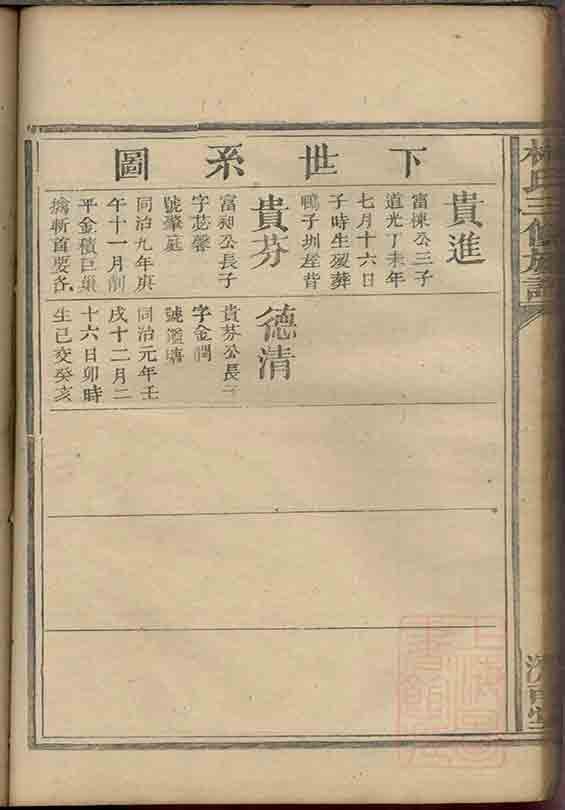 下世系圖
貴進
富棟公三子
道光丁未年
七月十六日
子時生歿葬
鴨子圳
貴芬
富昶公長子
字苾馨
號肇廷
同治九年庚
午十一月剿
平金積巨巢
擒斬首要各
德清
貴芬公長子
字金潤
號灃塘
同治元年壬
戌十二月二
十六日卯時
生已交癸亥
林氏三修族譜